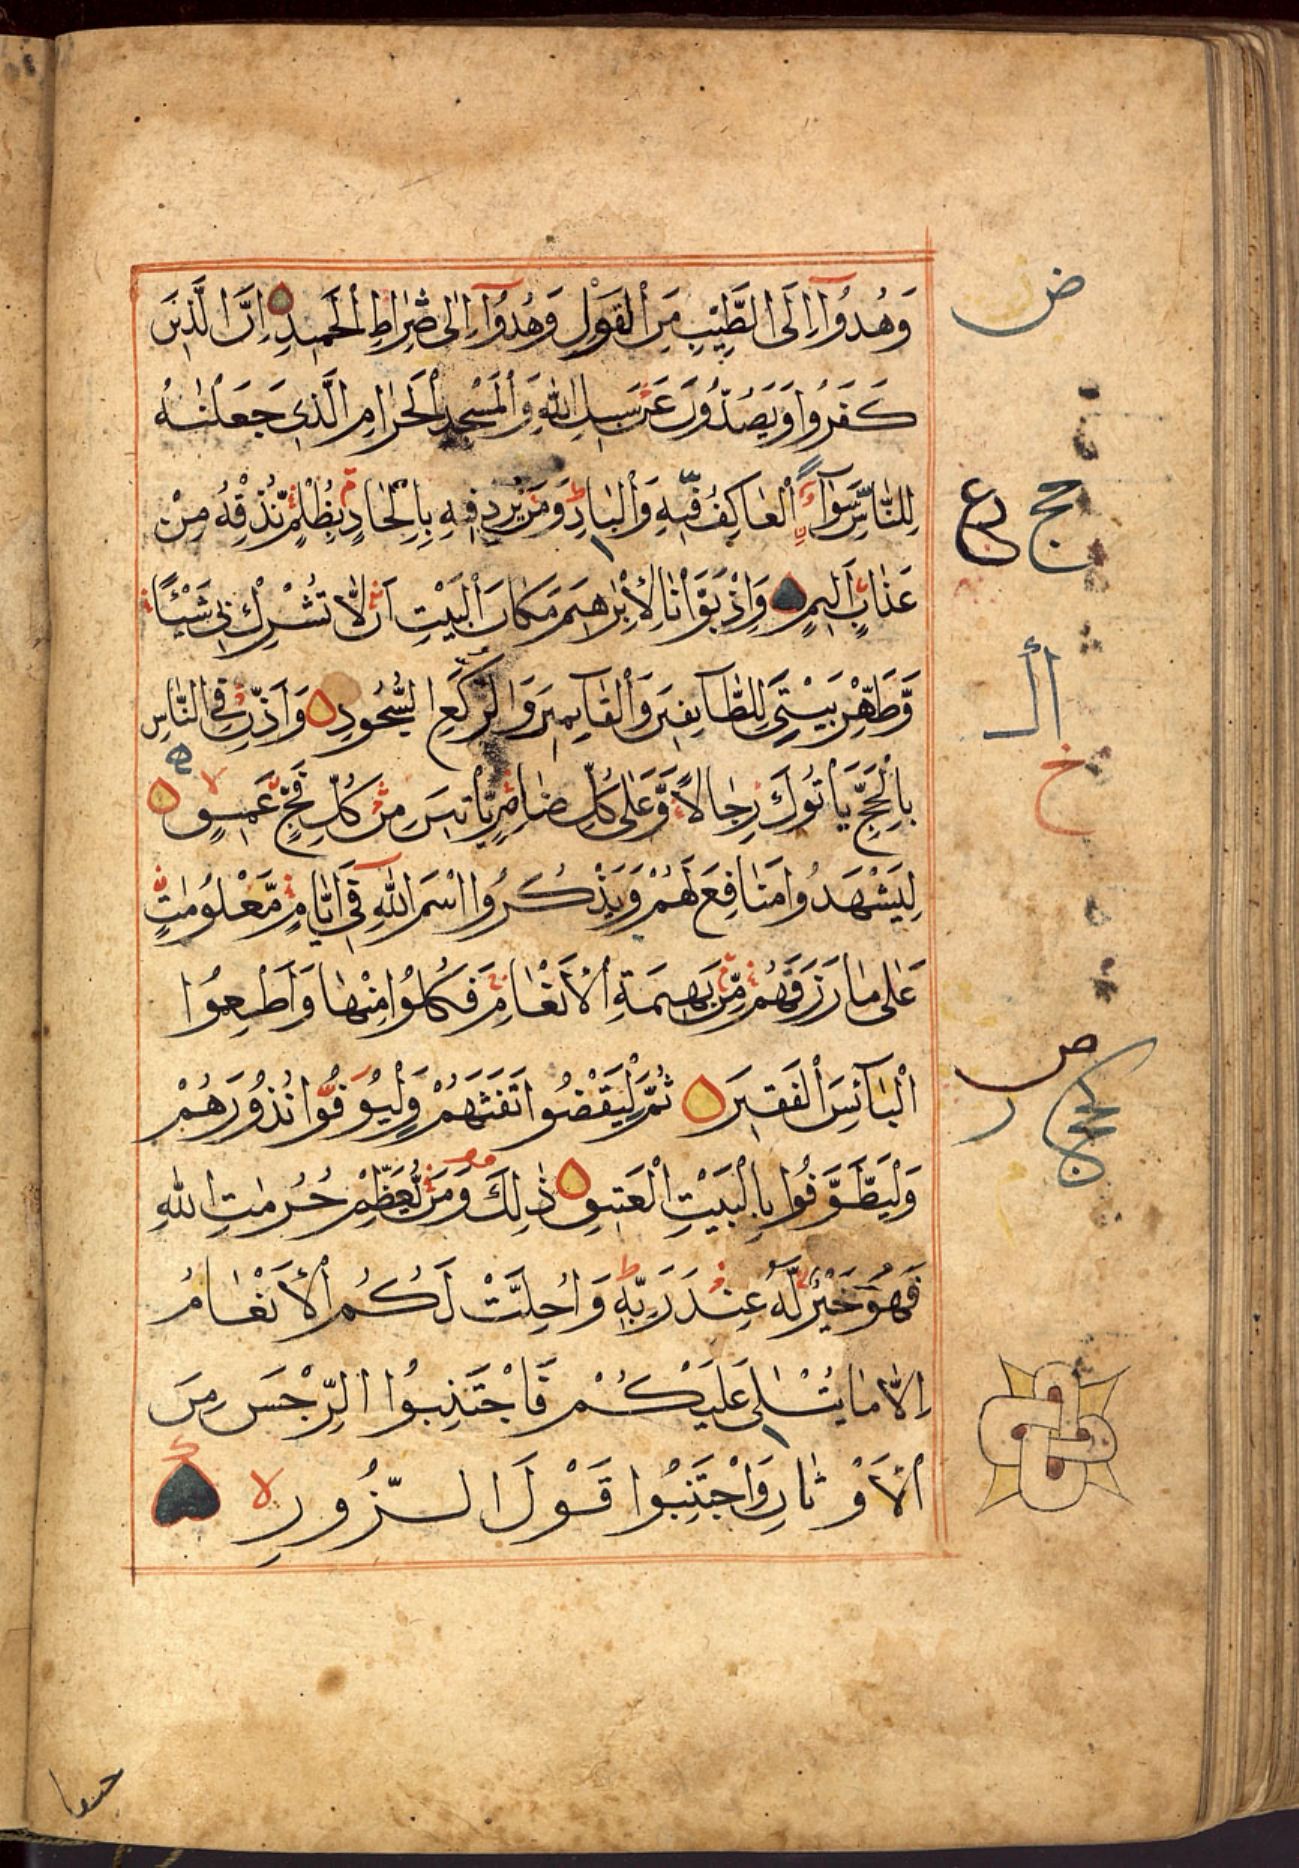 وَهُدُوٓا اِلَى الطَّيِّبِ مِنَ الْقَوْلِ وَهُدُوٓا اِلٰى صِرٰاطِ الْحَمٖيدِ اِنَّ الَّذٖينَ
كَفَرُوا وَيَصُدُّونَ عَنْ سَبٖيلِ اللّٰهِ وَالْمَسْجِدِ الْحَرٰامِ الَّذٖى جَعَلْنٰهُ
لِلنّٰاسِ سَوَآءً الْعٰاكِفُ فٖيهِ وَالْبٰادِ وَمَنْ يُرِدْ فٖيهِ بِاِلْحٰادٍ بِظُلْمٍ نُذِقْهُ مِنْ
عَذٰابٍ اَلٖيمٍ وَاِذْ بَوَّاْنٰا لِاِبْرٰهٖيمَ مَكٰانَ الْبَيْتِ اَنْ لٰا تُشْرِكْ بٖى شَيْـًٔا
وَّطَهِّرْ بَيْتِىَ لِلطَّآئِفٖينَ وَالْقَآئِمٖينَ وَالرُّكَّعِ السُّجُودِ وَاَذِّنْ فِى النّٰاسِ
بِالْحَجِّ يَاْتُوكَ رِجٰالًا وَّعَلٰى كُلِّ ضٰامِرٍ يَّاْتٖينَ مِنْ كُلِّ فَجٍّ عَمٖيقٍ
لِيَشْهَدُوا مَنٰافِعَ لَهُمْ وَيَذْكُرُوا اسْمَ اللّٰهِ فٖٓى اَيّٰامٍ مَّعْلُومٰتٍ
عَلٰى مٰا رَزَقَهُمْ مِّنْ بَهٖيمَةِ الْاَنْعٰامِ فَكُلُوا مِنْهٰا وَاَطْعِمُوا
الْبَآئِسَ الْفَقٖيرَ ثُمَّ لْيَقْضُوا تَفَثَهُمْ وَلْيُوفُوا نُذُورَهُمْ
وَلْيَطَّوَّفُوا بِالْبَيْتِ الْعَتٖيقِ ذٰلِكَ وَمَنْ يُعَظِّمْ حُرُمٰتِ اللّٰهِ
فَهُوَ خَيْرٌ لَّهُ عِنْدَ رَبِّهٖ وَاُحِلَّتْ لَكُمُ الْاَنْعٰامُ
اِلّٰا مٰا يُتْلٰى عَلَيْكُمْ فَاجْتَنِبُوا الرِّجْسَ مِنَ
الْاَوْثٰانِ وَاجْتَنِبُوا قَوْلَ الزُّورِ